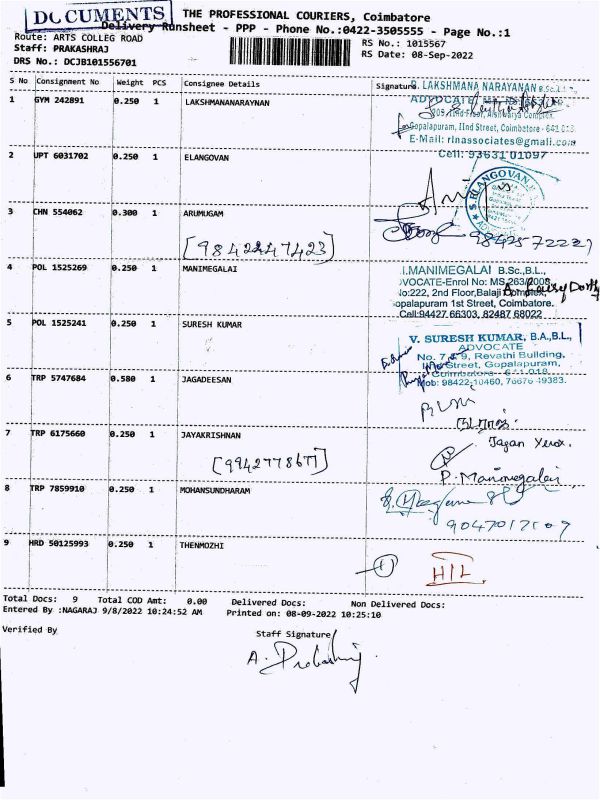 DOCUMENTS
THE PROFESSIONAL COURIERS, Coimbatore
Delivery Runsheet - PPP - Phone No.:0422-3505555 - Page No.:1
Route: ARTS COLLEG ROAD
RS No.: 1015567
Staff: PRAKASHRAJ
RS Date: 08-Sep-2022
DRS No.: DCJB101556701
S No Consignment No Weight PCS Consignee Details Signature
1 GYM 242891 0.250 1 LAKSHMANANARAYNAN
R. LAKSHMANA NARAYANAN
ADVOCATE
Gopalapuram, IInd Street, Coimbatore - 641 018.
E-Mail: rlnassociates@gmail.com
Cell: 93631 01097
2 UPT 6031702 0.250 1 ELANGOVAN
S. ELANGOVAN
3 CHN 554062 0.300 1 ARUMUGAM
[9842247423]
9842572227
4 POL 1525269 0.250 1 MANIMEGALAI
I.MANIMEGALAI B.Sc.,B.L.,
ADVOCATE-Enrol No: MS.263/2008
No:222, 2nd Floor,Balaji Complex,
Gopalapuram 1st Street, Coimbatore.
Cell:94427 66303, 82487 68022
5 POL 1525241 0.250 1 SURESH KUMAR
V. SURESH KUMAR, B.A.,B.L.,
ADVOCATE
No. 7 & 9, Revathi Building,
IInd Street, Gopalapuram,
Coimbatore - 641 018.
Mob: 98422-10460, 76676 49383.
6 TRP 5747684 0.580 1 JAGADEESAN
7 TRP 6175660 0.250 1 JAYAKRISHNAN
Jagan Xerox.
[9942778677]
P. Manimegalai
8 TRP 7859910 0.250 1 MOHANSUNDHARAM
9047017107
9 HRD 50125993 0.250 1 THENMOZHI
HIL
Total Docs: 9 Total COD Amt: 0.00 Delivered Docs: Non Delivered Docs:
Entered By :NAGARAJ 9/8/2022 10:24:52 AM Printed on: 08-09-2022 10:25:10
Verified By
Staff Signature